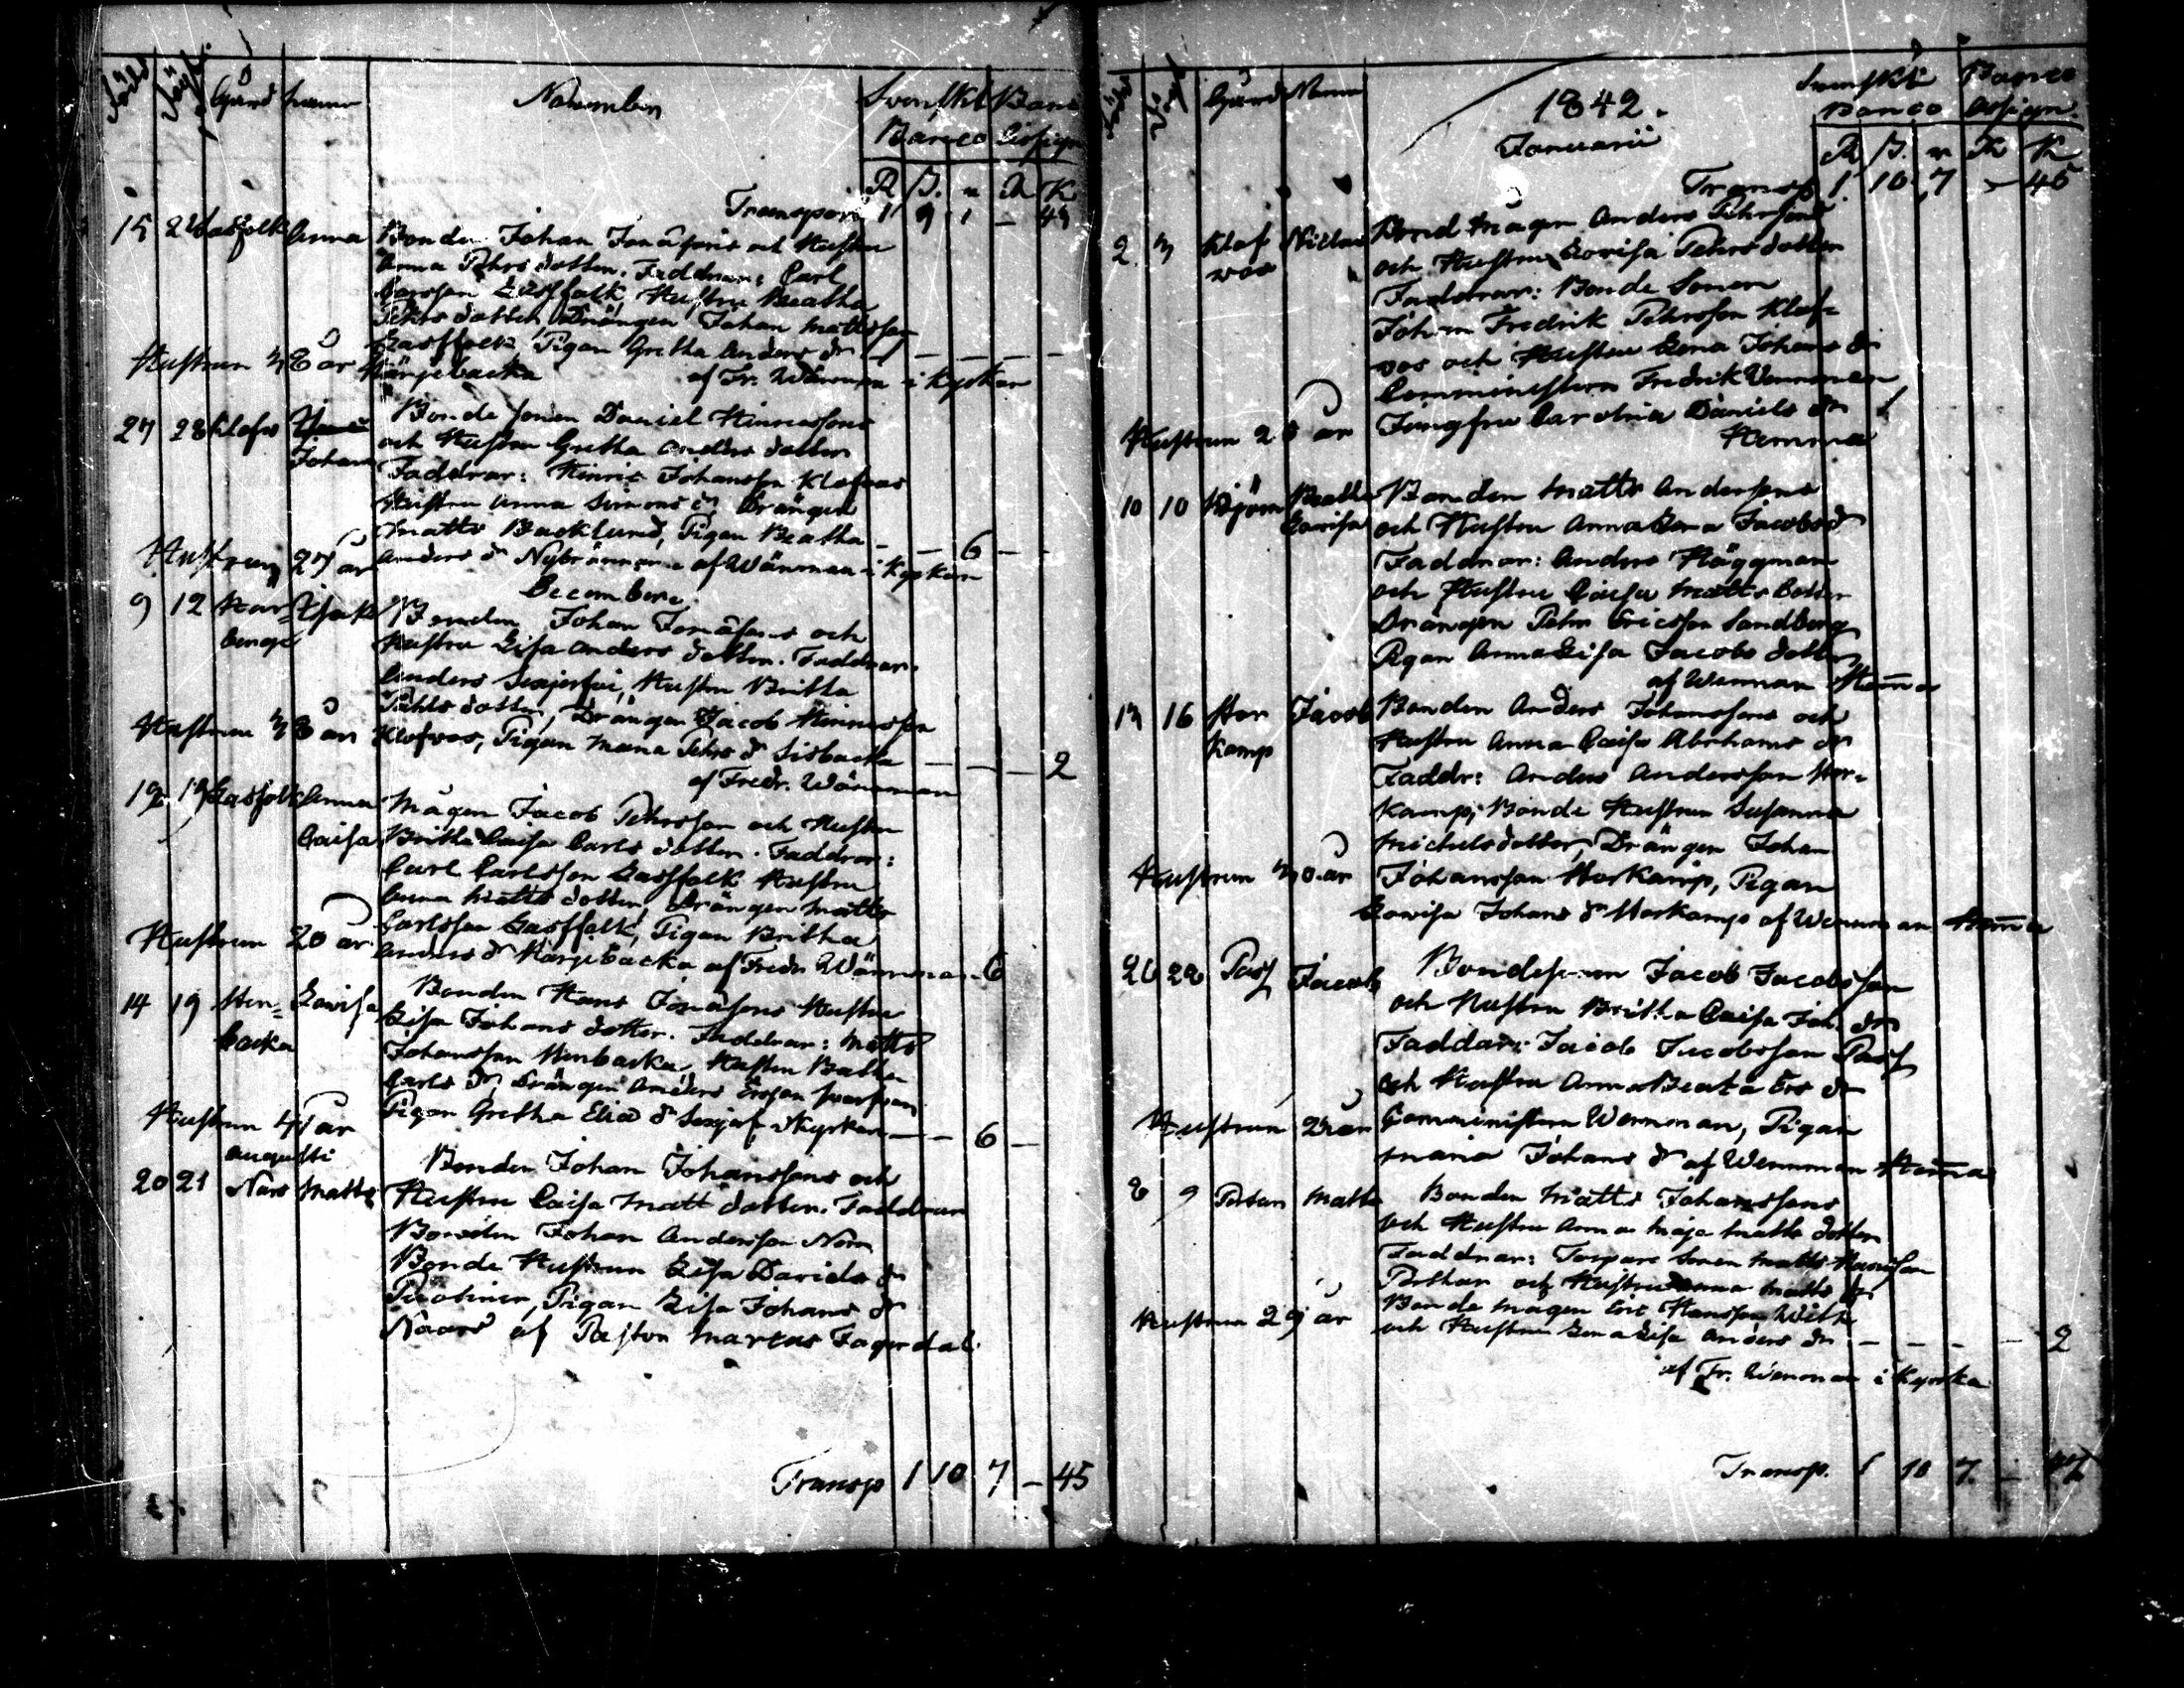 Född Döpt Gård Namn November Svenskt Banco
Banco Assign
R ß. r R K
Transport 1 9 1 - 43
15 21 Gasfolk Anna Bonden Johan Jonassons och Hustru
Anna Pehrs dotter. Faddrar: Carl
Carlsson Gassfolk, Hustru Beatha
Pehrs dotter, Drängen Johan Mattsson
Gassfolk, Pigan Gretha Anders dr
Hustrun 38 år Kärjebacka af Fr. Wänman i Kyrkan
27 28 Klofvos Johan Bonde Sonen Daniel Hinricssons
och Hustru Gretha Anders dotter
Faddrar: Hinric Johansson Klofvos
Hustru Anna Simons dr, Drängen
Matts Backlund, Pigan Beatha - - 6 -
Hustrun 27 år Anders dr Nybrännars af Wänman i Kyrkan
December
9 12 Isak Bonden Johan Jonassons och
Hustru Lisa Anders dotter. Faddrar:
Anders, Hustru Britta
Pehrs dotter, Drängen Jacob Hinricsson
Hustrun 38 år Klofvos, Pigan Maria Pehrs dr Sisbacka - - - 2
af Fredr. Wänman
12 19 Gasfolk Anna
Caisa Mågen Jacob Pehrsson och Hustru
Britha Caisa Carls dotter. Faddrar:
Carl Carlsson Gassfolk Hustru
Anna Matts dotter, Drängen Matts
Carlsson Gassfolk, Pigan Britha
Hustrun 20 år Anders dr Kärjebacka af Fredr Wänman - 6
14 19 Sten-
backa Lovisa Bonden Hans Jonassons Hustru
Lisa Johans dotter. Faddrar: Matts
Johansson Stenbacka, Hustru
Carls dr, Drängen Anders Ersson
Hustrun 41 år Pigan Gretha Elia dr i Kyrkan - - 6 -
Augusti
20 21 Nars Matts Bonden Johan Johanssons och
Hustru Caisa Matts dotter. Faddrar
Bonden Johan Andersson Nars
Bonde Hustrun Lisa Davids dr
Pigan Lisa Johans dr
Naars af Pastor Marcus Fagerdal.
Transp 1 10 7 - 45
Född Döpt Gård Namn 1842. Svenskt Banco
Januarii Banco Assign.
R ß. r R K
Transp 1 10 7 - 45
2 3 Klof
vos Niclas Bond Mågen Anders Pehrssons
och Hustru Lovisa Pehrs dotter
Faddrar: Bonde Sonen
Johan Fredrik Pehrsson Klof-
vos och Hustru Lena Johans dr
Comministern Fredrik Wenman
Hustrun 28 år Jungfru Carolina Daniels dr
Hemma
10 10 Björn Beatha
Lovisa Bonden Matts Anderssons
och Hustru Anna Lena Jacobs dr
Faddrar: Anders Häggman
och Hustru Caisa Matts dotter
Drängen Pehr Ericsson Sandberg
Pigan Anna Lisa Jacobs dotter
af Wenman Hemma
13 16 Stor
kamp Jacob Bonden Anders Johanssons och
Hustru Anna Caisa Abrahams dr
Faddr: Anders Andersson Stor-
kamp, Bonde Hustrun Susanna
Michelsdotter, Drängen Johan
Hustrun 30 år Johansson Storkamp, Pigan
Lovisa Johans dr Storkamp af Wenman Hemma
Pass Jacob Bondesonen Jacob Jacobsson
och Hustru Britha Caisa Joh. dr
Faddar: Jacob Jacobsson Pass
och Hustru Anna Beata Ers dr
Hustrun år Comministern Wenman, Pigan
Maria Johans dr af Wenman Hemma
8 9 Matts Bonden Matts Johanssons
och Hustru Anna Maja Matts dotter
Faddrar: Torpare Sonen Matts Hansson
och Hustru Anna Matts dr
Hustrun 29 år Bonde Mågen Eric Hansson
och Hustru Lena Lisa Anders dr - - - - 2
af Fr. Wenman i Kyrka
Transp. 1 10 7 - 47